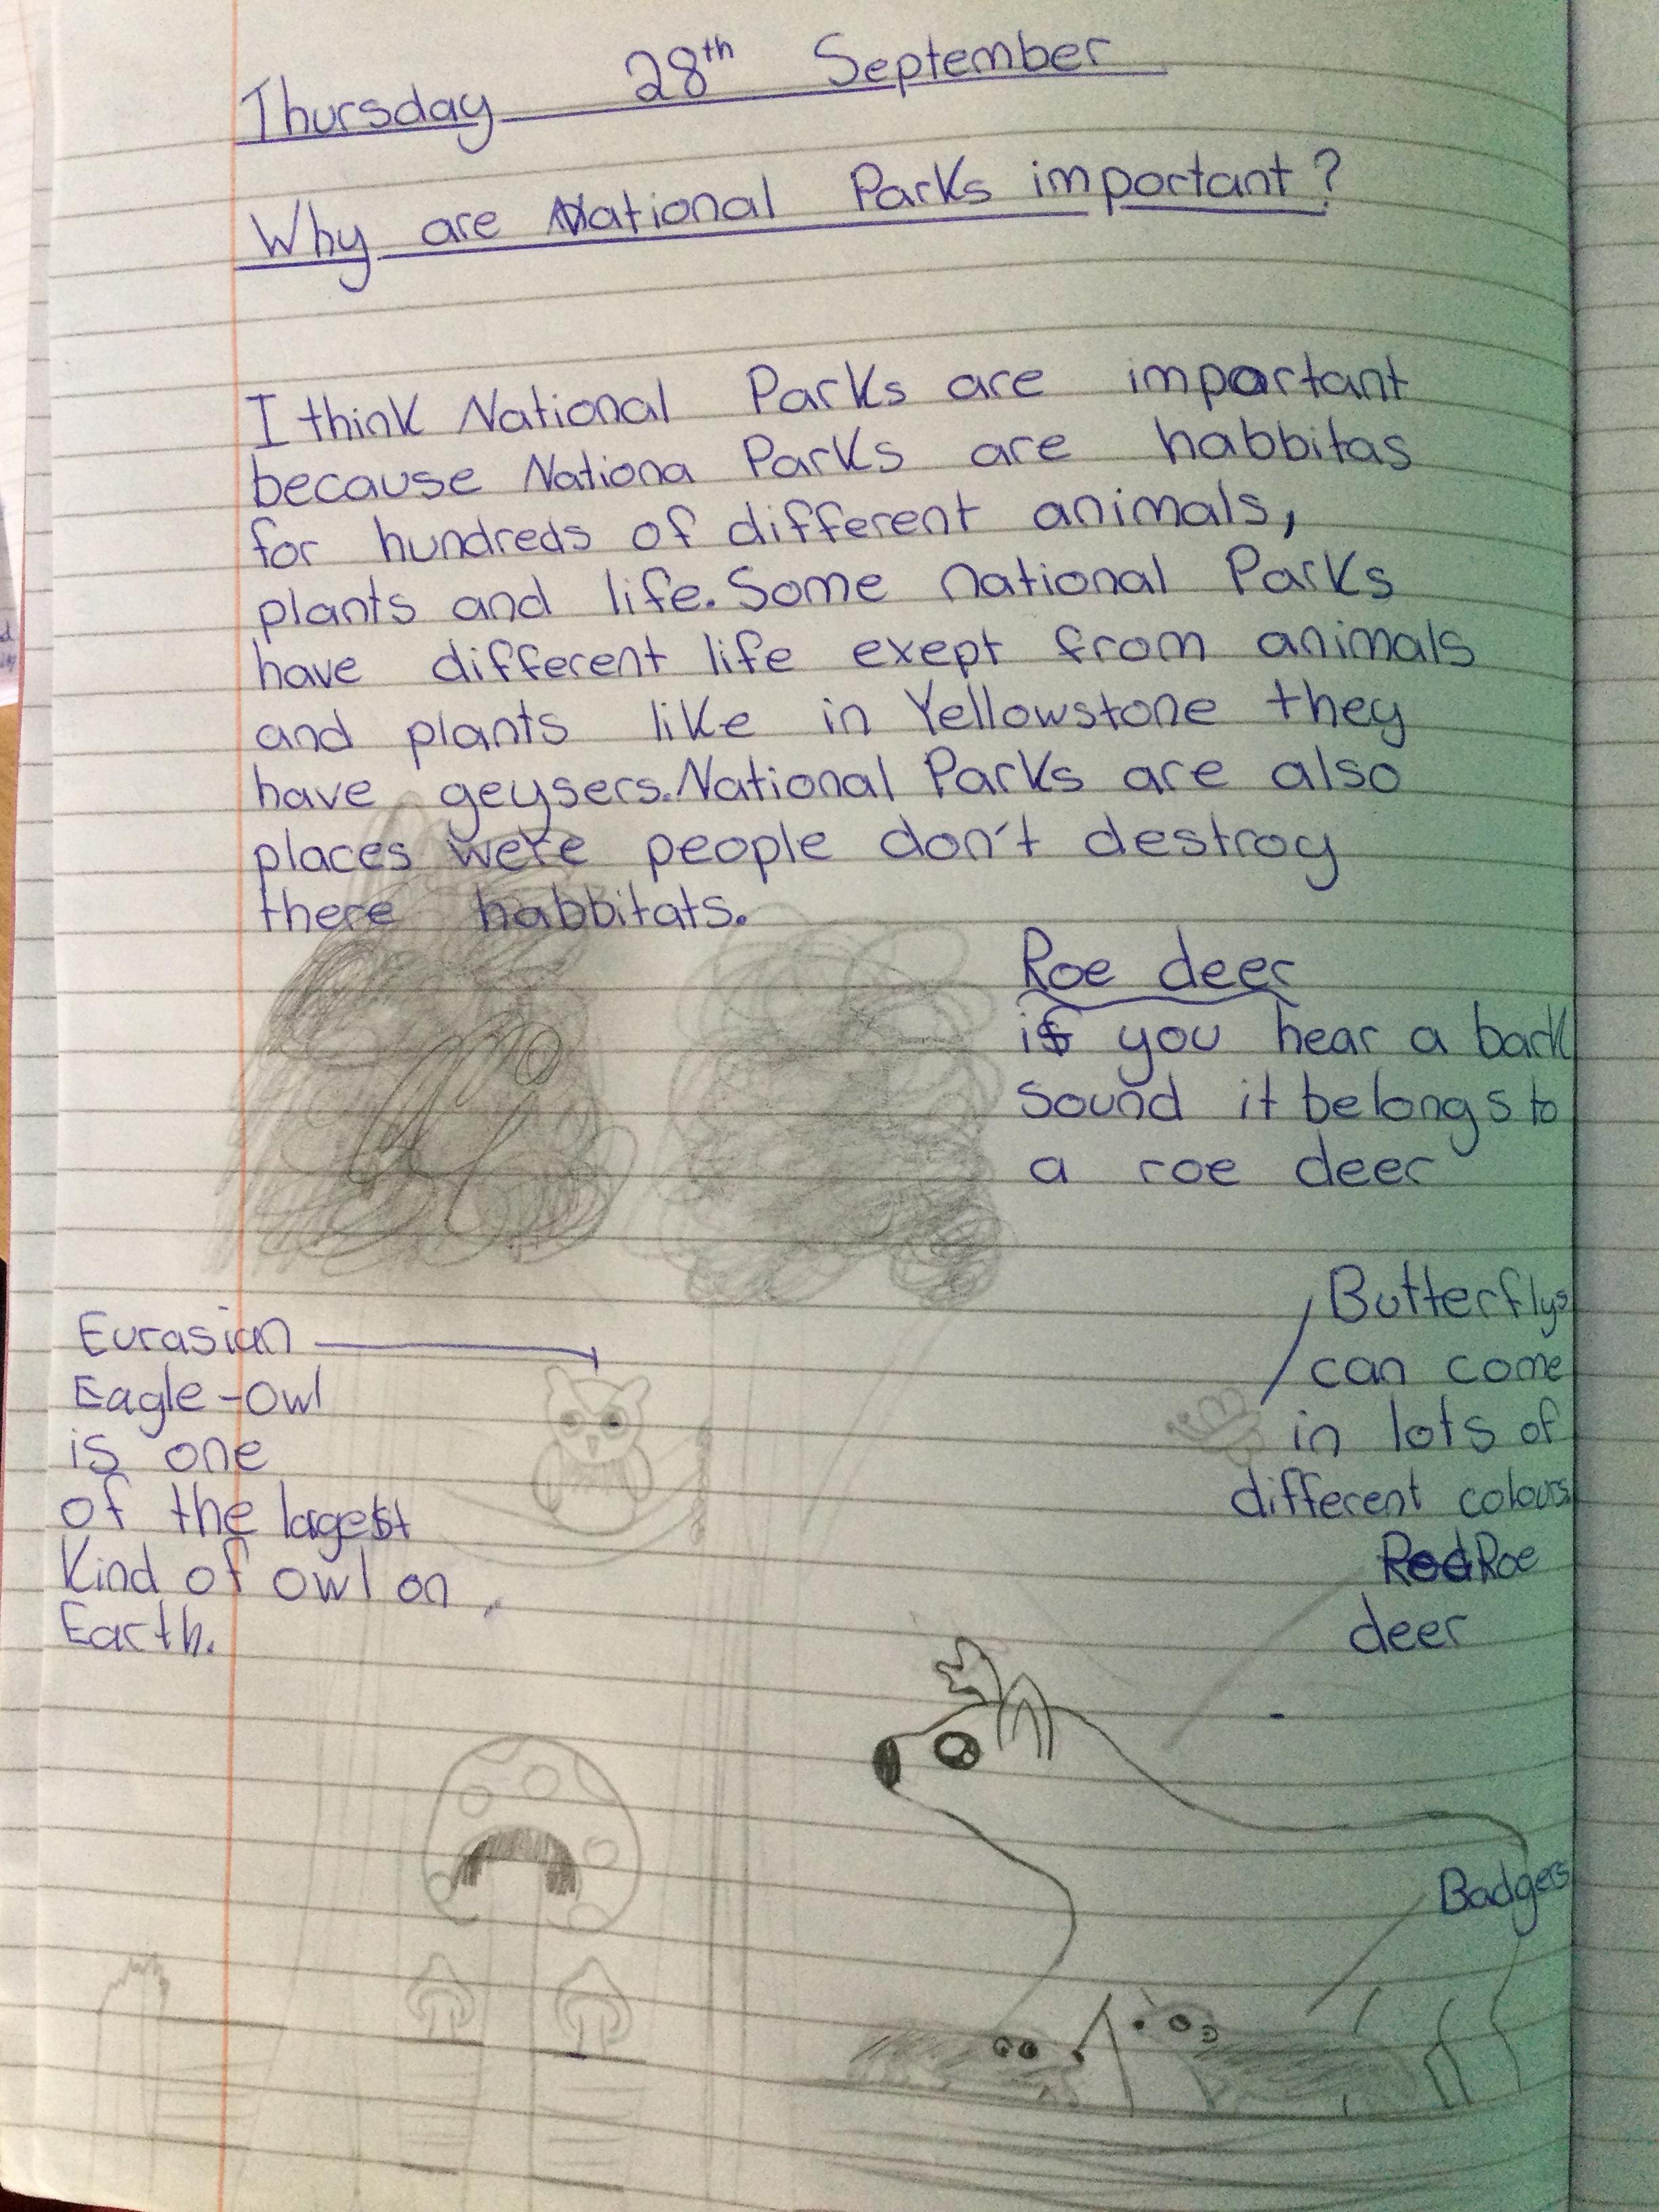 Thursday 28th September
Why are National Parks important?
I think National Parks are important
because Nationa Parks are habbitas
for hundreds of different animals,
plants and life. Some national Parks
have different life exept from animals
and plants like in Yellowstone they
have geysers. National Parks are also
places were people don't destroy
there habbitats.
Roe deer
if you hear a bark
sound it belongs to
a roe deer
Eurasian
Eagle-Owl
is one
of the lagest
kind of owl on
Earth.
Butterflys
can come
in lots of
different colours
Roe
deer
Badgers